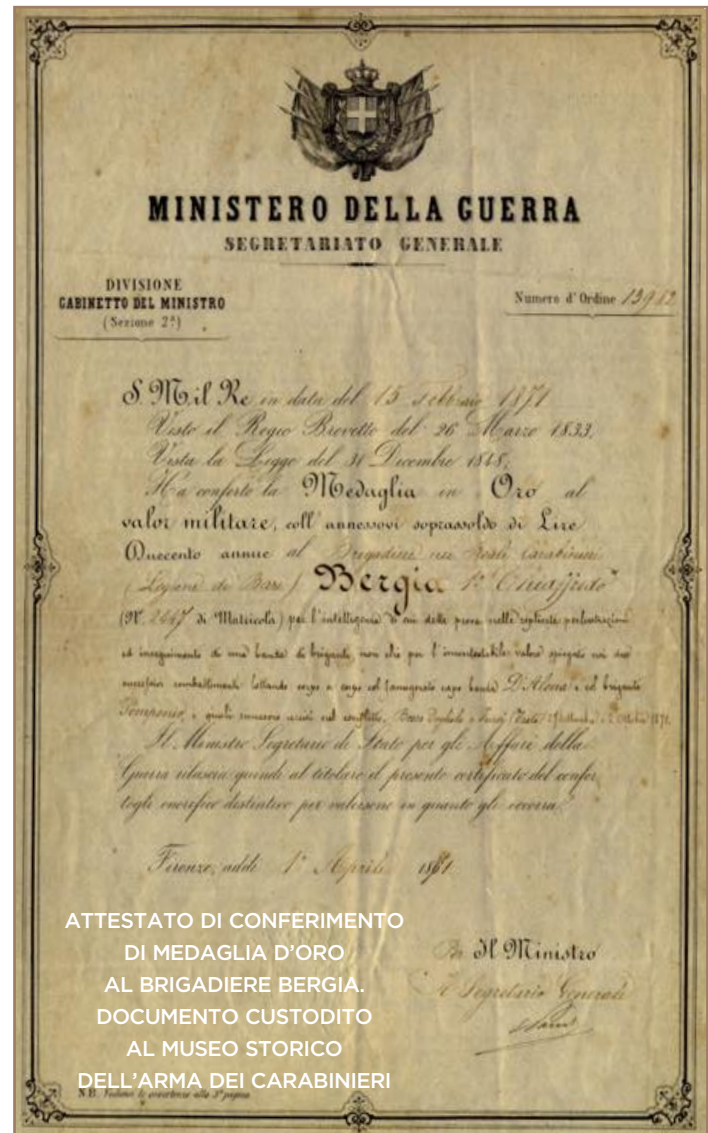 MINISTERO DELLA GUERRA
SEGRETARIATO GENERALE
DIVISIONE
GABINETTO DEL MINISTRO
(Sezione 2ª)
Numero d'Ordine 13912
S. M. il Re in data del 15 Febbraio 1871
Visto il Regio Brevetto del 26 Marzo 1833,
Vista la Legge del 31 Dicembre 1848,
Ha conferto la Medaglia in Oro al
valor militare, coll'annessovi soprassoldo di Lire
Duecento annue al Brigadiere nei Reali Carabinieri
(Legione di Bari) Bergia 1º Chiaffredo
(Nº 2447 di Matricola) per l'intelligenza di cui dette prova nelle replicate perlustrazioni
ed inseguimento di una banda di briganti, non che per l'incontestabile valore spiegato nei due
successivi combattimenti lottando corpo a corpo col famigerato capo banda D'Alena e col brigante
Pomponio, i quali rimasero uccisi nel conflitto. Bosco e Ottobre
Il Ministro Segretario di Stato per gli Affari della
Guerra rilascia quindi al titolare il presente certificato del confer
togli onorifico distintivo per valersene in quanto gli occorra.
Firenze, addì 1º Aprile 1871
Il Ministro
Il Segretario Generale
ATTESTATO DI CONFERIMENTO
DI MEDAGLIA D'ORO
AL BRIGADIERE BERGIA.
DOCUMENTO CUSTODITO
AL MUSEO STORICO
DELL'ARMA DEI CARABINIERI
N.B. Vedansi le avvertenze alla 3ª pagina